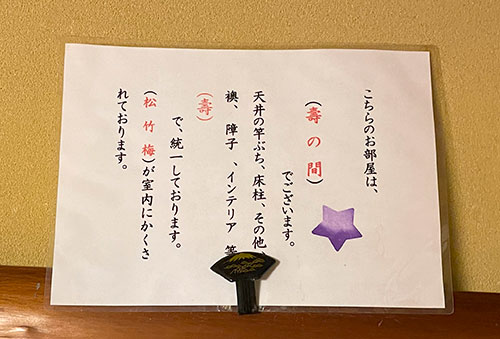 こちらのお部屋は、
（壽の間）
でございます。
天井の竿ぶち、床柱、その他、
襖、障子、インテリア 等
（壽）
で、統一しております。
（松竹梅）が室内にかくさ
れております。